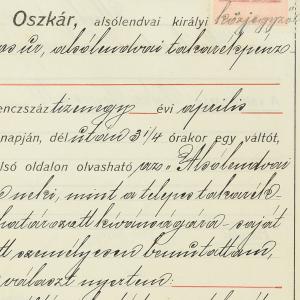 Oszkár, alsólendvai királyi közjegyző
os úr, alsólendvai takarékpénz
enczszáz tizenegy évi április
napján, dél után 3 1/4 órakor egy váltót,
lső oldalon olvasható "Alsólendvai
neki, mint a telepes takarék-
határozott kivánságára saját
tt személyesen bemutattam,
választ nyertem: